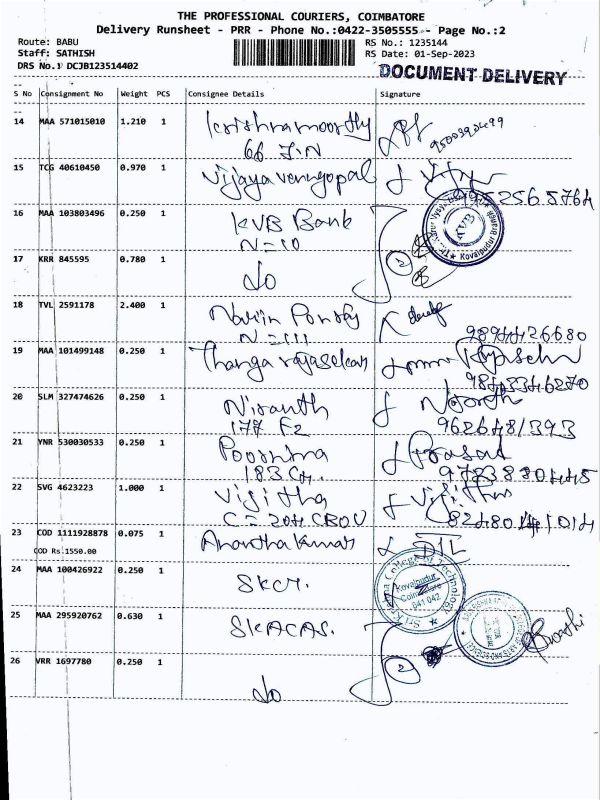 THE PROFESSIONAL COURIERS, COIMBATORE
Delivery Runsheet - PRR - Phone No.:0422-3505555 - Page No.:2
Route: BABU RS No.: 1235144
Staff: SATHISH RS Date: 01-Sep-2023
DRS No.1 DCJB123514402 DOCUMENT DELIVERY
S No Consignment No Weight PCS Consignee Details Signature
14 MAA 571015010 1.210 1 Krishnamoorthy
66 J.N
15 TCG 40610450 0.970 1 Vijaya venugopal
16 MAA 103803496 0.250 1 KVB Bank
N=10
Kovaipudur
17 KRR 845595 0.780 1 do 2
18 TVL 2591178 2.400 1
9894426680
19 MAA 101499148 0.250 1 Thanga rajasekar
20 SLM 327474626 0.250 1 Nisanth
177 F2 9626481393
21 YNR 530030533 0.250 1 Poornima Prasad
183 9788380445
22 SVG 4623223 1.000 1 Vijitha
82480141014
23 COD 1111928878 0.075 1 Anantha Kumar
COD Rs.1550.00
24 MAA 100426922 0.250 1 SKCT. College of Technology
Kovaipudur
Coimbatore
641 042
25 MAA 295920762 0.630 1 SKACAS.
26 VRR 1697780 0.250 1 do 2